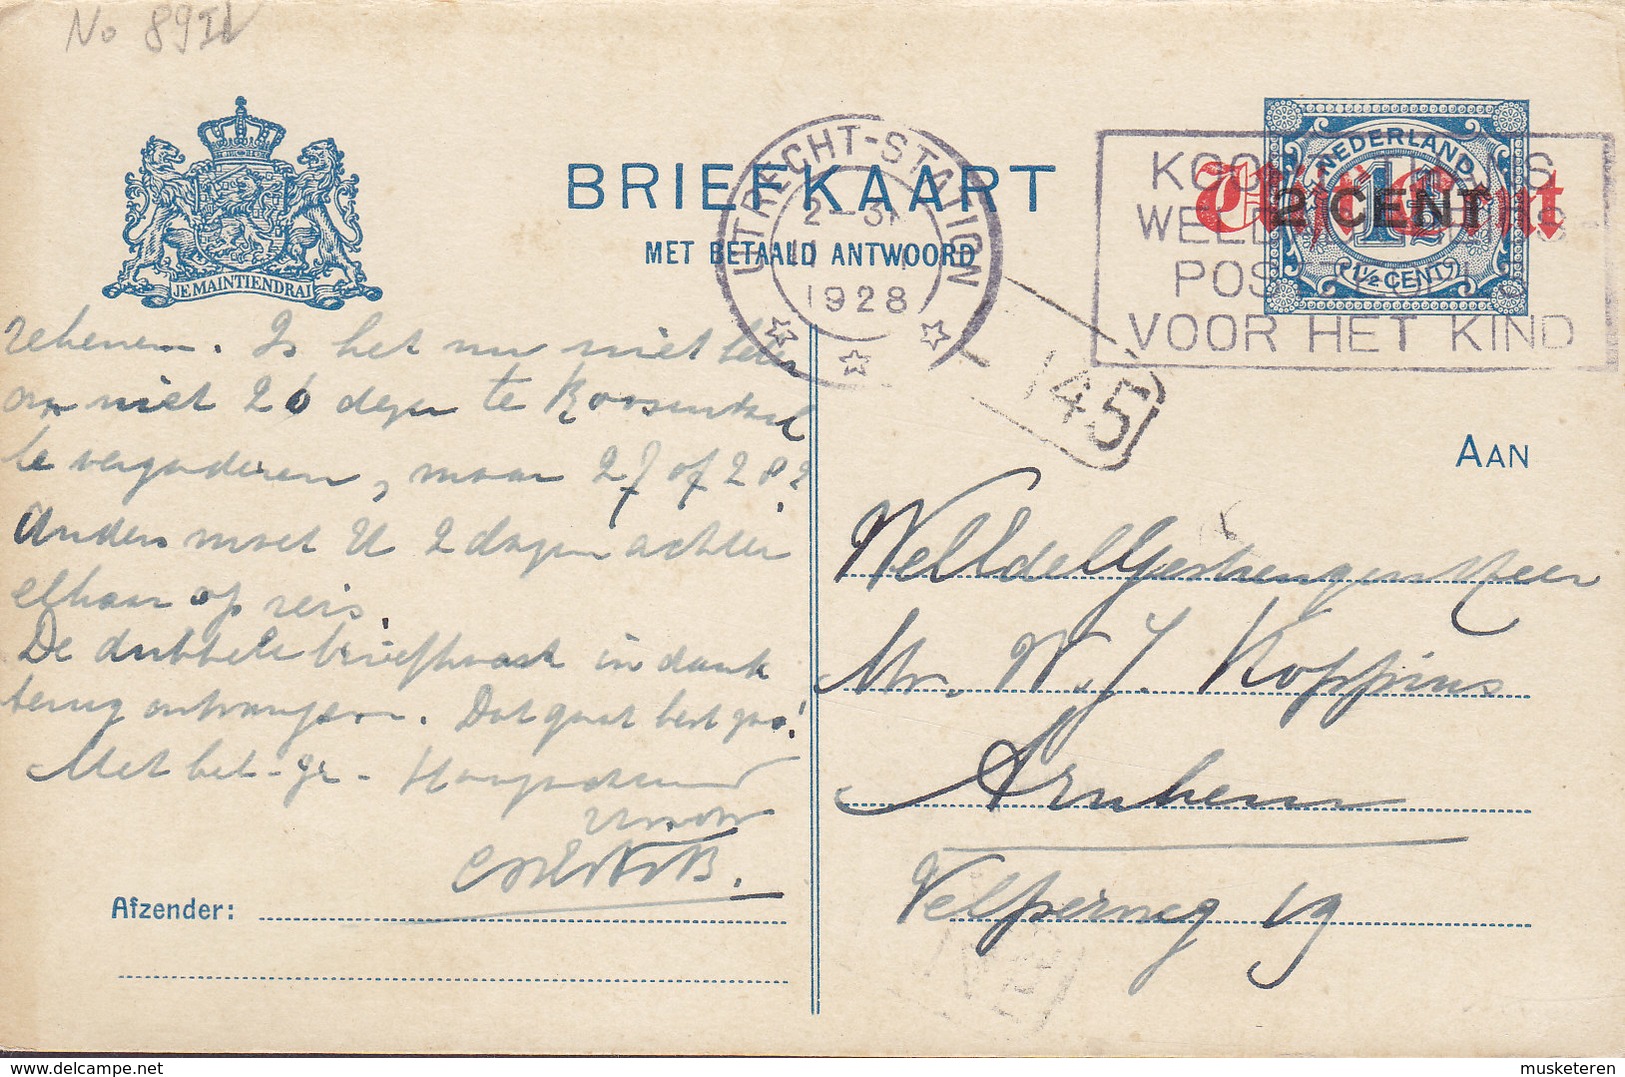 No 89 II
JE MAINTIENDRAI
BRIEFKAART
MET BETAALD ANTWOORD
UTRECHT-STATION
2-3
1928
NEDERLAND
1½ CENT
Vijf Cent
2 CENT
KOOPT
WELDADIGHEIDS
POSTZEGELS
VOOR HET KIND
145
rekenen. Is het nu niet beter
om niet 26 dezer te Roosendaal
te vergaderen, maar 27 of 28?
Anders moet U 2 dagen achter
elkaar op reis.
De dubbele briefkaart in dank
terug ontvangen. Dat gaat best zoo!
Met bel. gr. Hoogachtend
Afzender:
AAN
WelEdelGestrengen Heer
Mr. W. J. Koppius
Arnhem
Velperweg 19
musketeren
delcampe.net